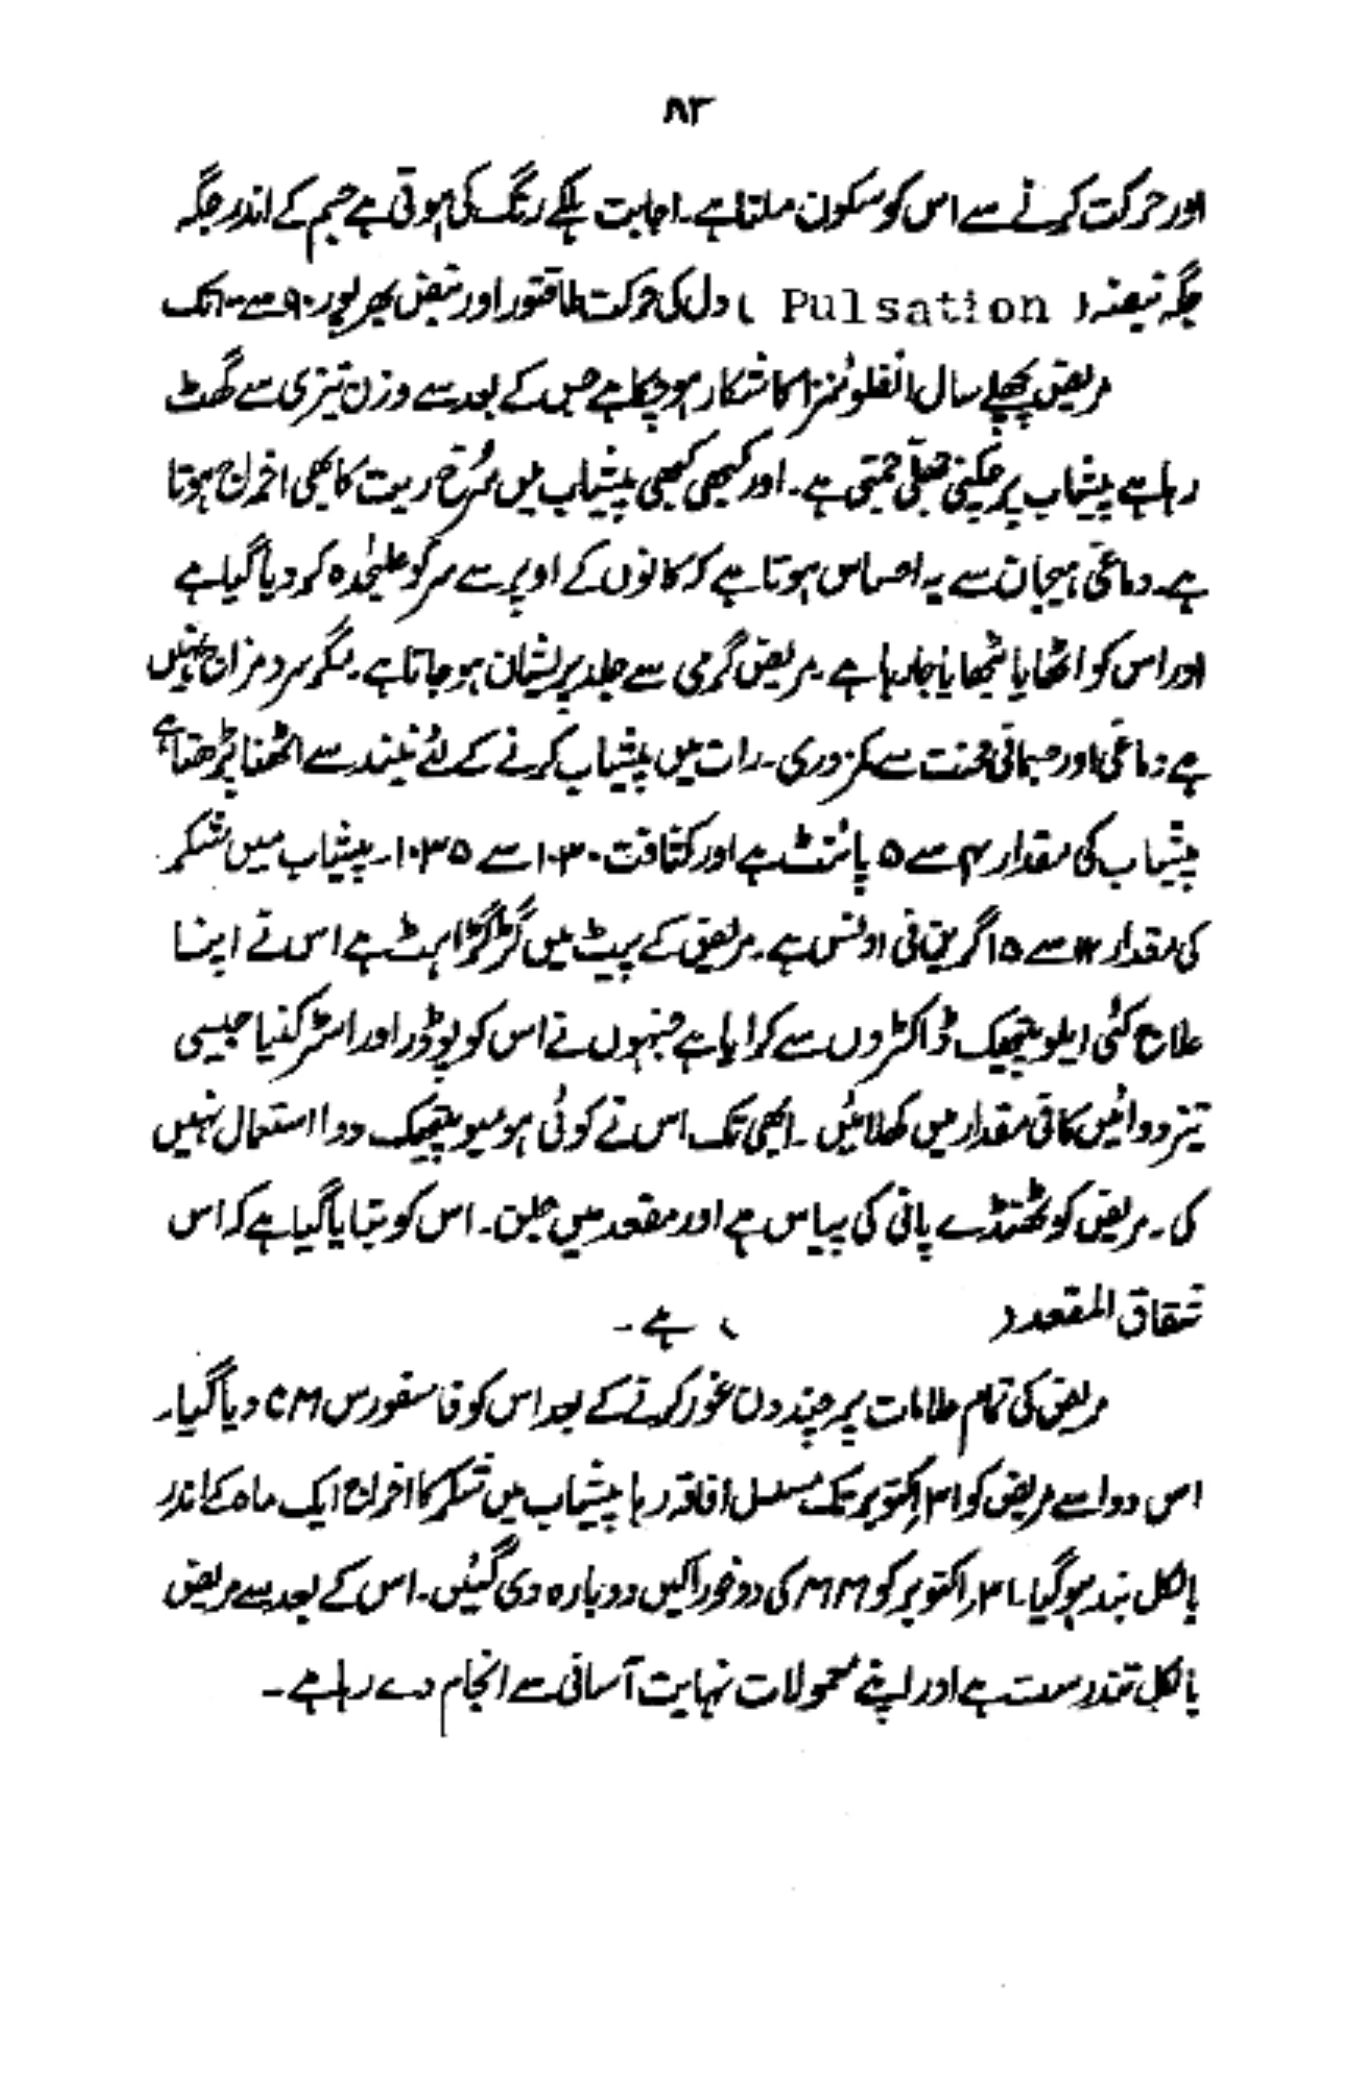 ۸۳
اور حرکت کرنے سے اس کو سکون ملتا ہے۔ اجابت ہلکے رنگ کی ہوتی ہے جسم کے اندر جگہ
جگہ نبضہ ( Pulsation ) دل کی حرکت طاقتور اور نبض بھرپور ۹۰ سے ۱۰۰ تک
مریض پچھلے سال انفلوئنزا کا شکار ہو چکا ہے جس کے بعد سے وزن تیزی سے گھٹ
رہا ہے پیشاب پر چکنی جھلّی جمتی ہے۔ اور کبھی کبھی پیشاب میں سُرخ ریت کا بھی اخراج ہوتا
ہے۔ دماغی ہیجان سے یہ احساس ہوتا ہے کہ کانوں کے اوپر سے سر کو علیحٰدہ کر دیا گیا ہے
اور اس کو اٹھایا بٹھایا جا رہا ہے۔ مریض گرمی سے جلد پریشان ہو جاتا ہے۔ مگر سرد مزاج نہیں
ہے دماغی اور جسمانی محنت سے کمزوری۔ رات میں پیشاب کرنے کے لئے نیند سے اٹھنا پڑھتا ہے
پیشاب کی مقدار ۴ سے ۵ پائنٹ ہے اور کثافت ۱۰۳۰ سے ۱۰۳۵۔ پیشاب میں شکر
کی مقدار ۱۲ سے ۱۵ گرین فی اونس ہے۔ مریض کے پیٹ میں گڑگڑاہٹ ہے اس نے اپنا
علاج کئی ایلوپیتھک ڈاکٹروں سے کرایا ہے جنہوں نے اس کو پوڈر اور اسٹرکنیا جیسی
تیز دوائیں کافی مقدار میں کھلائیں۔ ابھی تک اس نے کوئی ہومیوپیتھک دوا استعمال نہیں
کی۔ مریض کو ٹھنڈے پانی کی پیاس ہے اور مقعد میں جلن۔ اس کو بتایا گیا ہے کہ اس
شقاق المقعد ( ) ہے۔
مریض کی تمام علامات پر چند دن غور کرنے کے بعد اس کو فاسفورس CM دیا گیا۔
اس دوا سے مریض کو ۳۱ اکتوبر تک مسلسل افاقہ رہا پیشاب میں شکر کا اخراج ایک ماہ کے اندر
بالکل بند ہو گیا۔ ۳۱ اکتوبر کو MM کی دو خوراکیں دوبارہ دی گئیں۔ اس کے بعد سے مریض
بالکل تندرست ہے اور اپنے معمولات نہایت آسانی سے انجام دے رہا ہے۔